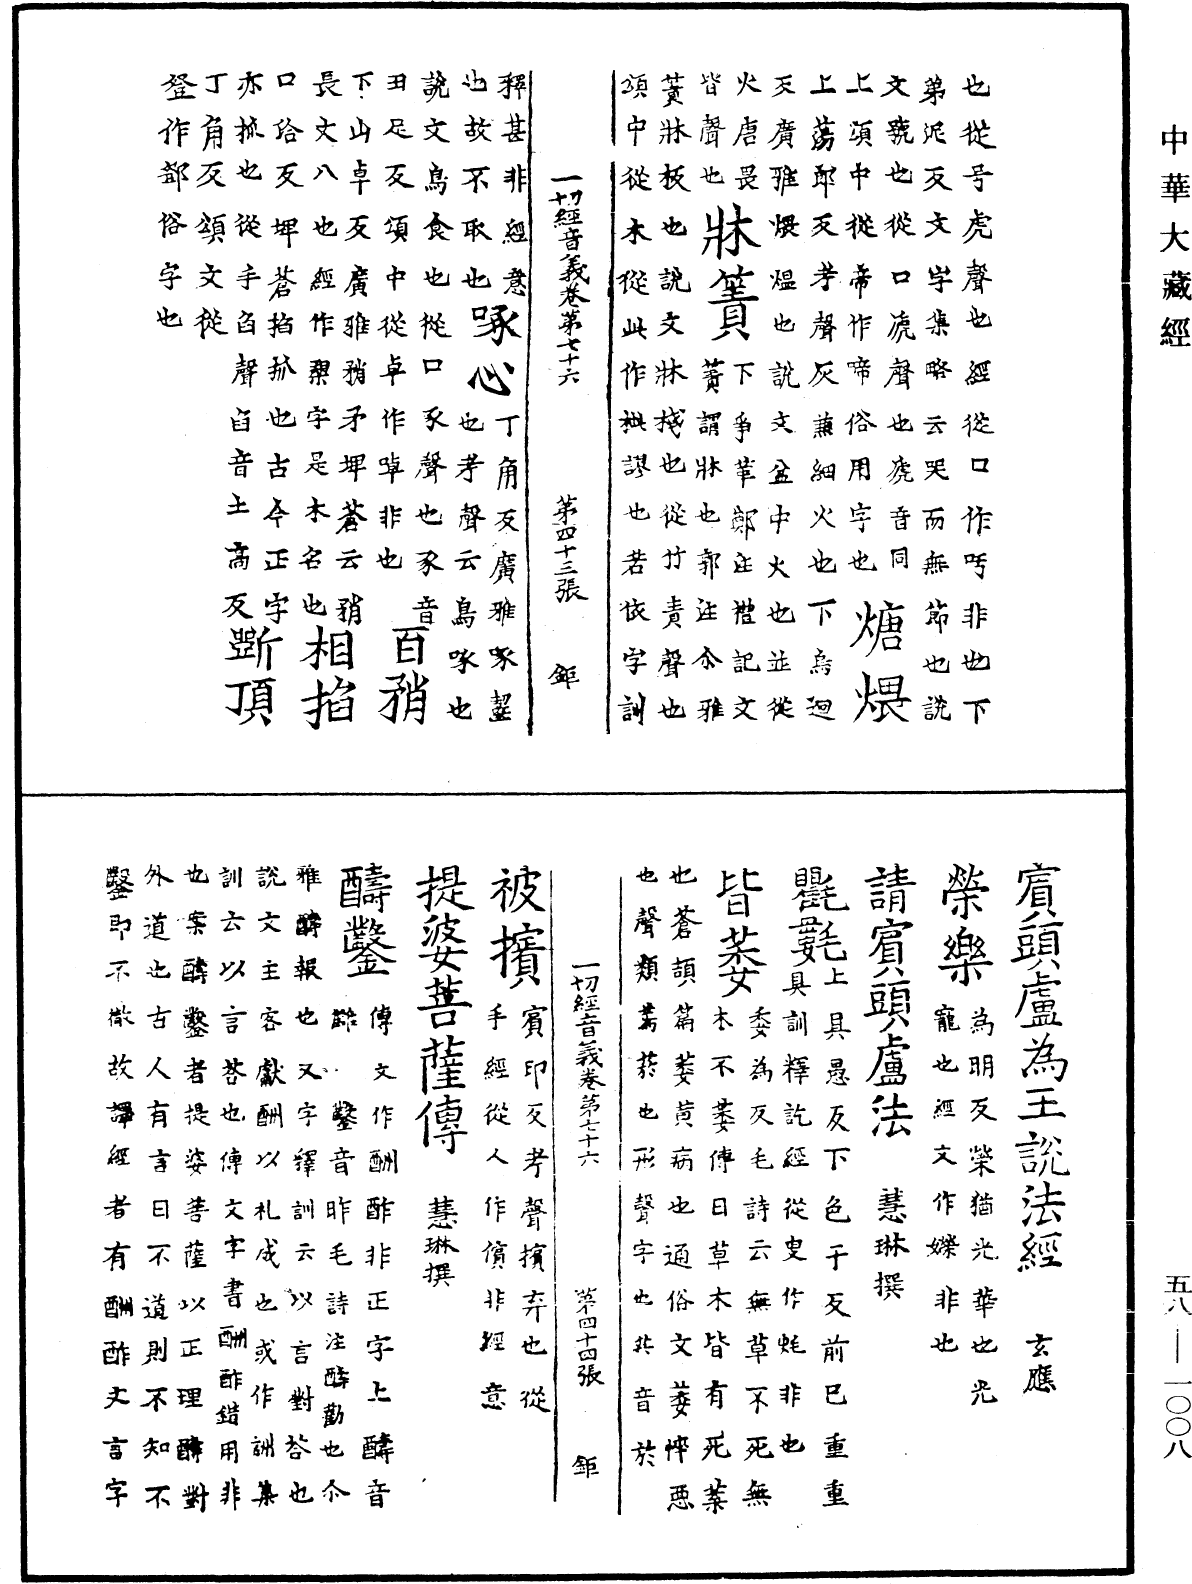 中華大藏經
也從号虎聲也經從口作呺非也下
弟泥反文字集略云哭而無節也說
文號也從口虒聲也虒音同
上頌中從帝作啼俗用字也
煻煨
上蕩郎反考聲灰兼細火也下烏迴
反廣雅煨煴也說文盆中火也並從
火唐畏
皆聲也
牀簀
下爭革反鄭注禮記文
簀謂牀也郭注尒雅
簀牀板也說文牀棧也從竹責聲也
頌中從木從此作柴謬也若依字訓
一切經音義卷第七十六 第四十三張 鉅
釋甚非經意
也故不取也
啄心
丁角反廣雅啄齧
也考聲云鳥啄也
說文鳥食也從口豕聲也豕音
丑足反頌中從卓作啅非也
百矟
下山卓反廣雅矟矛埤蒼云矟
長丈八也經作槊字是木名也
相掐
口洽反埤蒼掐抓也古今正字
亦抓也從手臽聲臽音土高反
斲頂
丁角反頌文從
登作鄧俗字也
賓頭盧為王說法經 玄應
榮樂
為明反榮猶光華也光
寵也經文作嬫非也
請賓頭盧法 慧琳撰
氍㲣
上具愚反下色于反前已重重
具訓釋訖經從叟作毪非也
皆萎
委為反毛詩云無草不死無
木不萎傳曰草木皆有死葉
也蒼頡篇萎黃病也通俗文萎悴悪
也聲類蔫菸也形聲字也菸音於
一切經音義卷第七十六 第四十四張 鉅
被擯
賓印反考聲擯弃也從
手經從人作儐非經意
提婆菩薩傳 慧琳撰
醻鑿
傳文作酬酢非正字上醻音
讎鑿音昨毛詩注醻勸也尒
雅醻報也又字釋訓云以言對荅也
說文主客獻酬以札成也或作詶集
訓云以言荅也傳文字書酬酢錯用非
也案醻鑿者提婆菩薩以正理醻對
外道也古人有言曰不道則不知不
鑿即不徹故譯經者有酬酢文言字
五八——一〇〇八